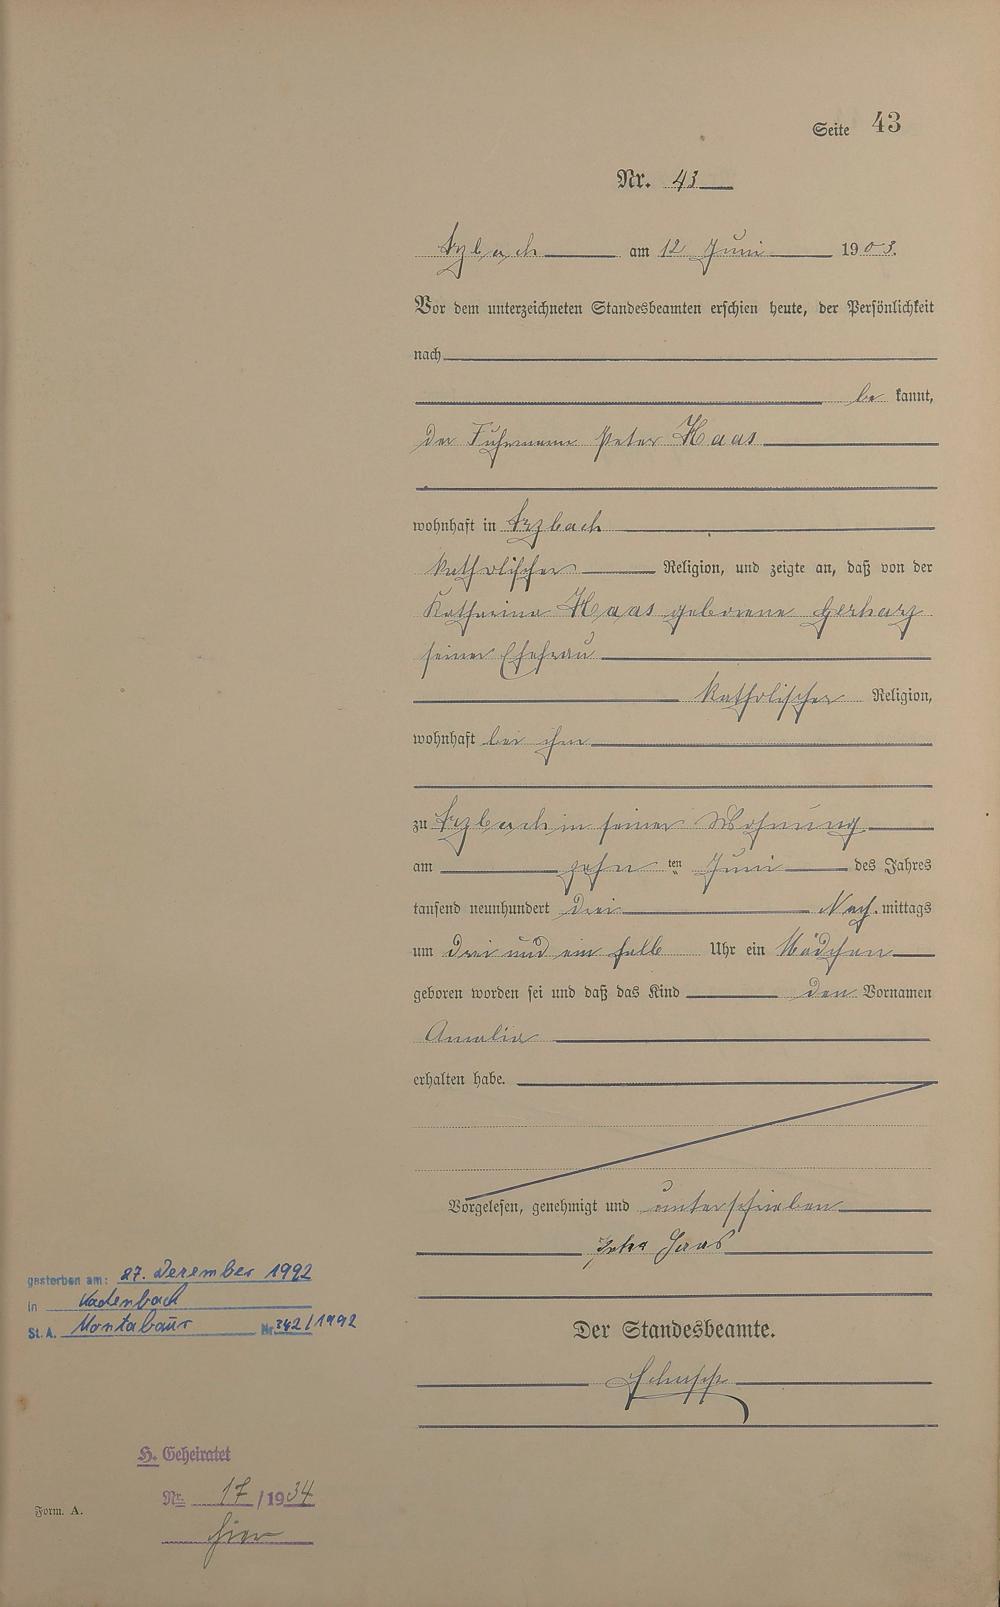 Seite 43
Nr. 43
Arzbach am 12 Juni 1903.
Vor dem unterzeichneten Standesbeamten erschien heute, der Persönlichkeit
nach
be kannt,
der Fuhrmann Peter Haas
wohnhaft in Arzbach
katholischer Religion, und zeigte an, daß von der
Katharina Haas geborene Gerharz
seiner Ehefrau
katholischer Religion,
wohnhaft bei ihm
zu Arzbach in seiner Wohnung
am zehn ten Juni des Jahres
tausend neunhundert drei Nach mittags
um drei und ein halb Uhr ein Mädchen
geboren worden sei und daß das Kind den Vornamen
Amalia
erhalten habe.
Vorgelesen, genehmigt und unterschrieben
Peter Haas
gestorben am: 27. Dezember 1992
in Kadenbach
St. A. Montabaur Nr 342/1992
Der Standesbeamte.
H. Geheiratet
Nr. 17/1934
hier
Form. A.